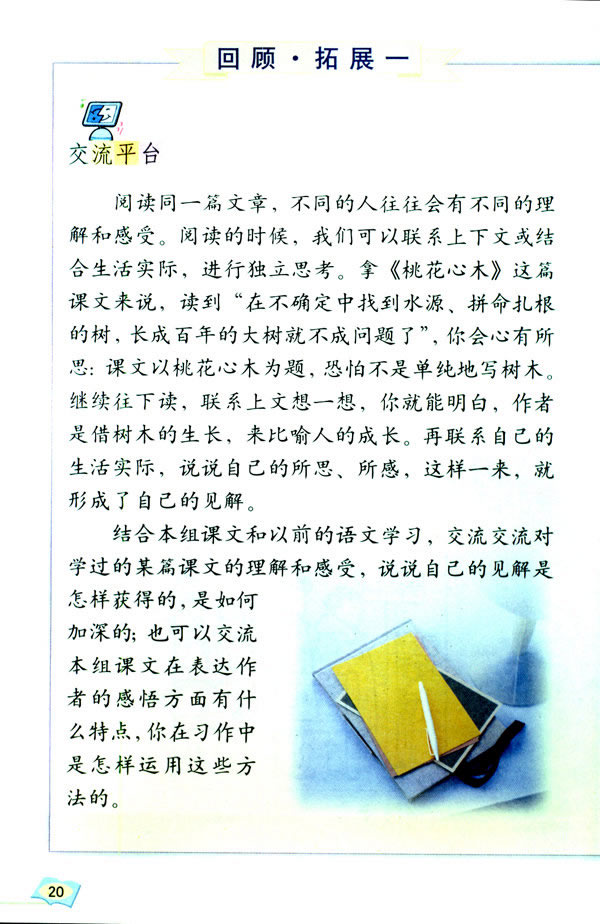 回顾·拓展一
交流平台
阅读同一篇文章，不同的人往往会有不同的理
解和感受。阅读的时候，我们可以联系上下文或结
合生活实际，进行独立思考。拿《桃花心木》这篇
课文来说，读到“在不确定中找到水源、拼命扎根
的树，长成百年的大树就不成问题了”，你会心有所
思：课文以桃花心木为题，恐怕不是单纯地写树木。
继续往下读，联系上文想一想，你就能明白，作者
是借树木的生长，来比喻人的成长。再联系自己的
生活实际，说说自己的所思、所感，这样一来，就
形成了自己的见解。
结合本组课文和以前的语文学习，交流交流对
学过的某篇课文的理解和感受，说说自己的见解是
怎样获得的，是如何
加深的；也可以交流
本组课文在表达作
者的感悟方面有什
么特点，你在习作中
是怎样运用这些方
法的。
20